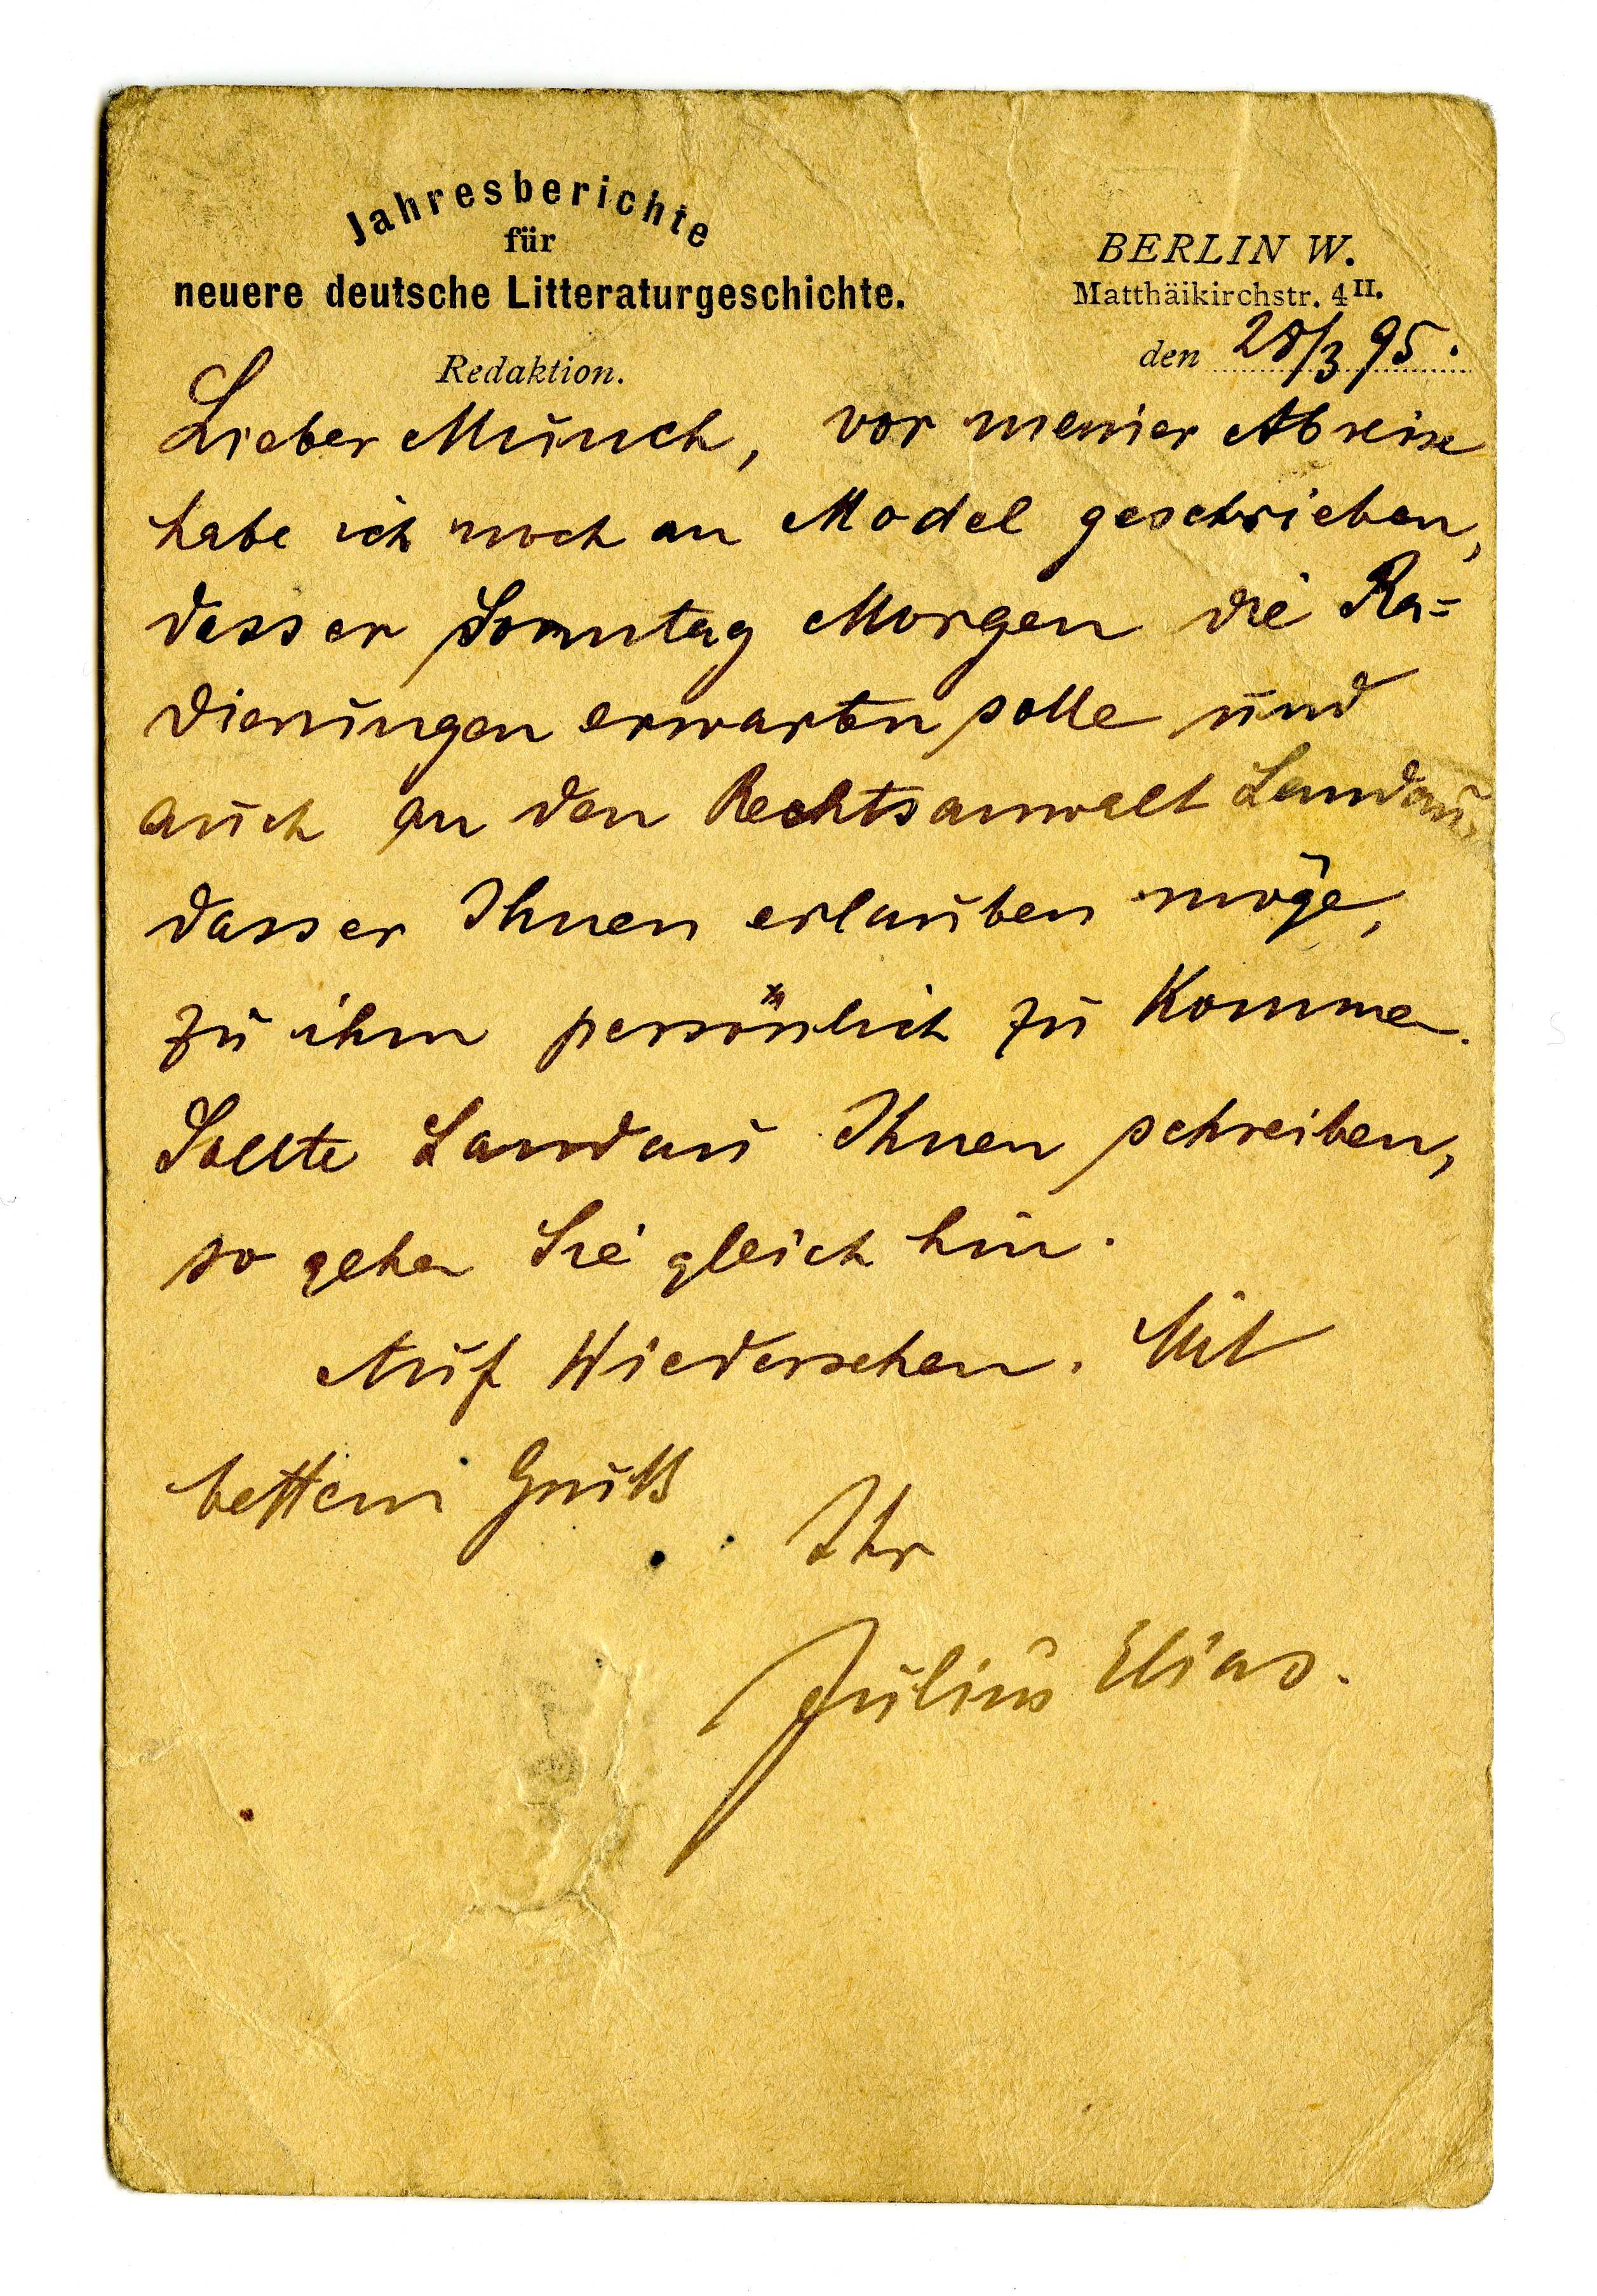 Jahresberichte
für
neuere deutsche Litteraturgeschichte.
Redaktion.
BERLIN W.
Matthäikirchstr. 4 II.
den 28/3 95.
Lieber Munch, vor meiner Abreise
habe ich noch an Model geschrieben,
dass er Sonntag Morgen die Ra=
dierungen erwarten solle und
auch an den Rechtsanwalt Landau,
dass er Ihnen erlauben möge,
zu ihm persönlich zu kommen.
Sollte Landau Ihnen schreiben,
so gehen Sie gleich hin.
Auf Wiedersehen. Mit
bestem Gruß
Ihr
Julius Elias.